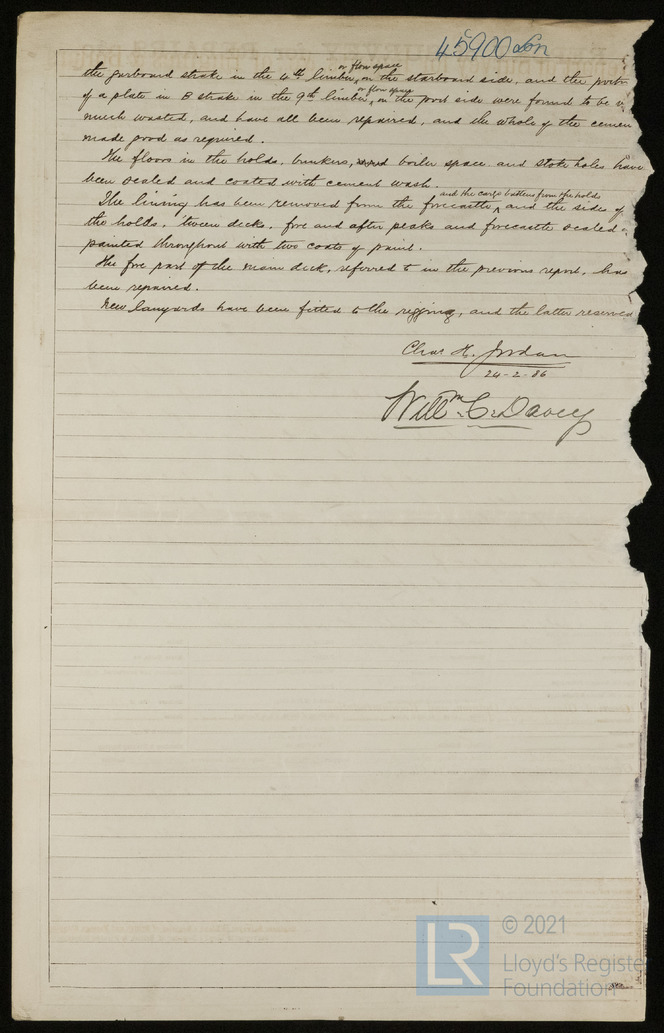 45900 Lon
the garboard strake in the 4th limber or flow space, on the starboard side, and the porti
of a plate in B strake in the 9th limber or flow space, on the port side were found to be v
much wasted, and have all been repaired, and the whole of the cemen
made good as required.
The floors in the holds, bunkers, boiler space and stoke holes have
been scaled and coated with cement wash.
The lining has been removed from the forecastle and the cargo battens from the holds and the sides of
the holds, 'tween decks, fore and after peaks and forecastle scaled
painted throughout with two coats of paint.
The fore part of the main deck, referred to in the previous report, has
been repaired.
New lanyards have been fitted to the rigging, and the latter reserved
Chas H. Jordan
24-2-86
Willm C. Davey
LR
© 2021
Lloyd's Registe
Foundation